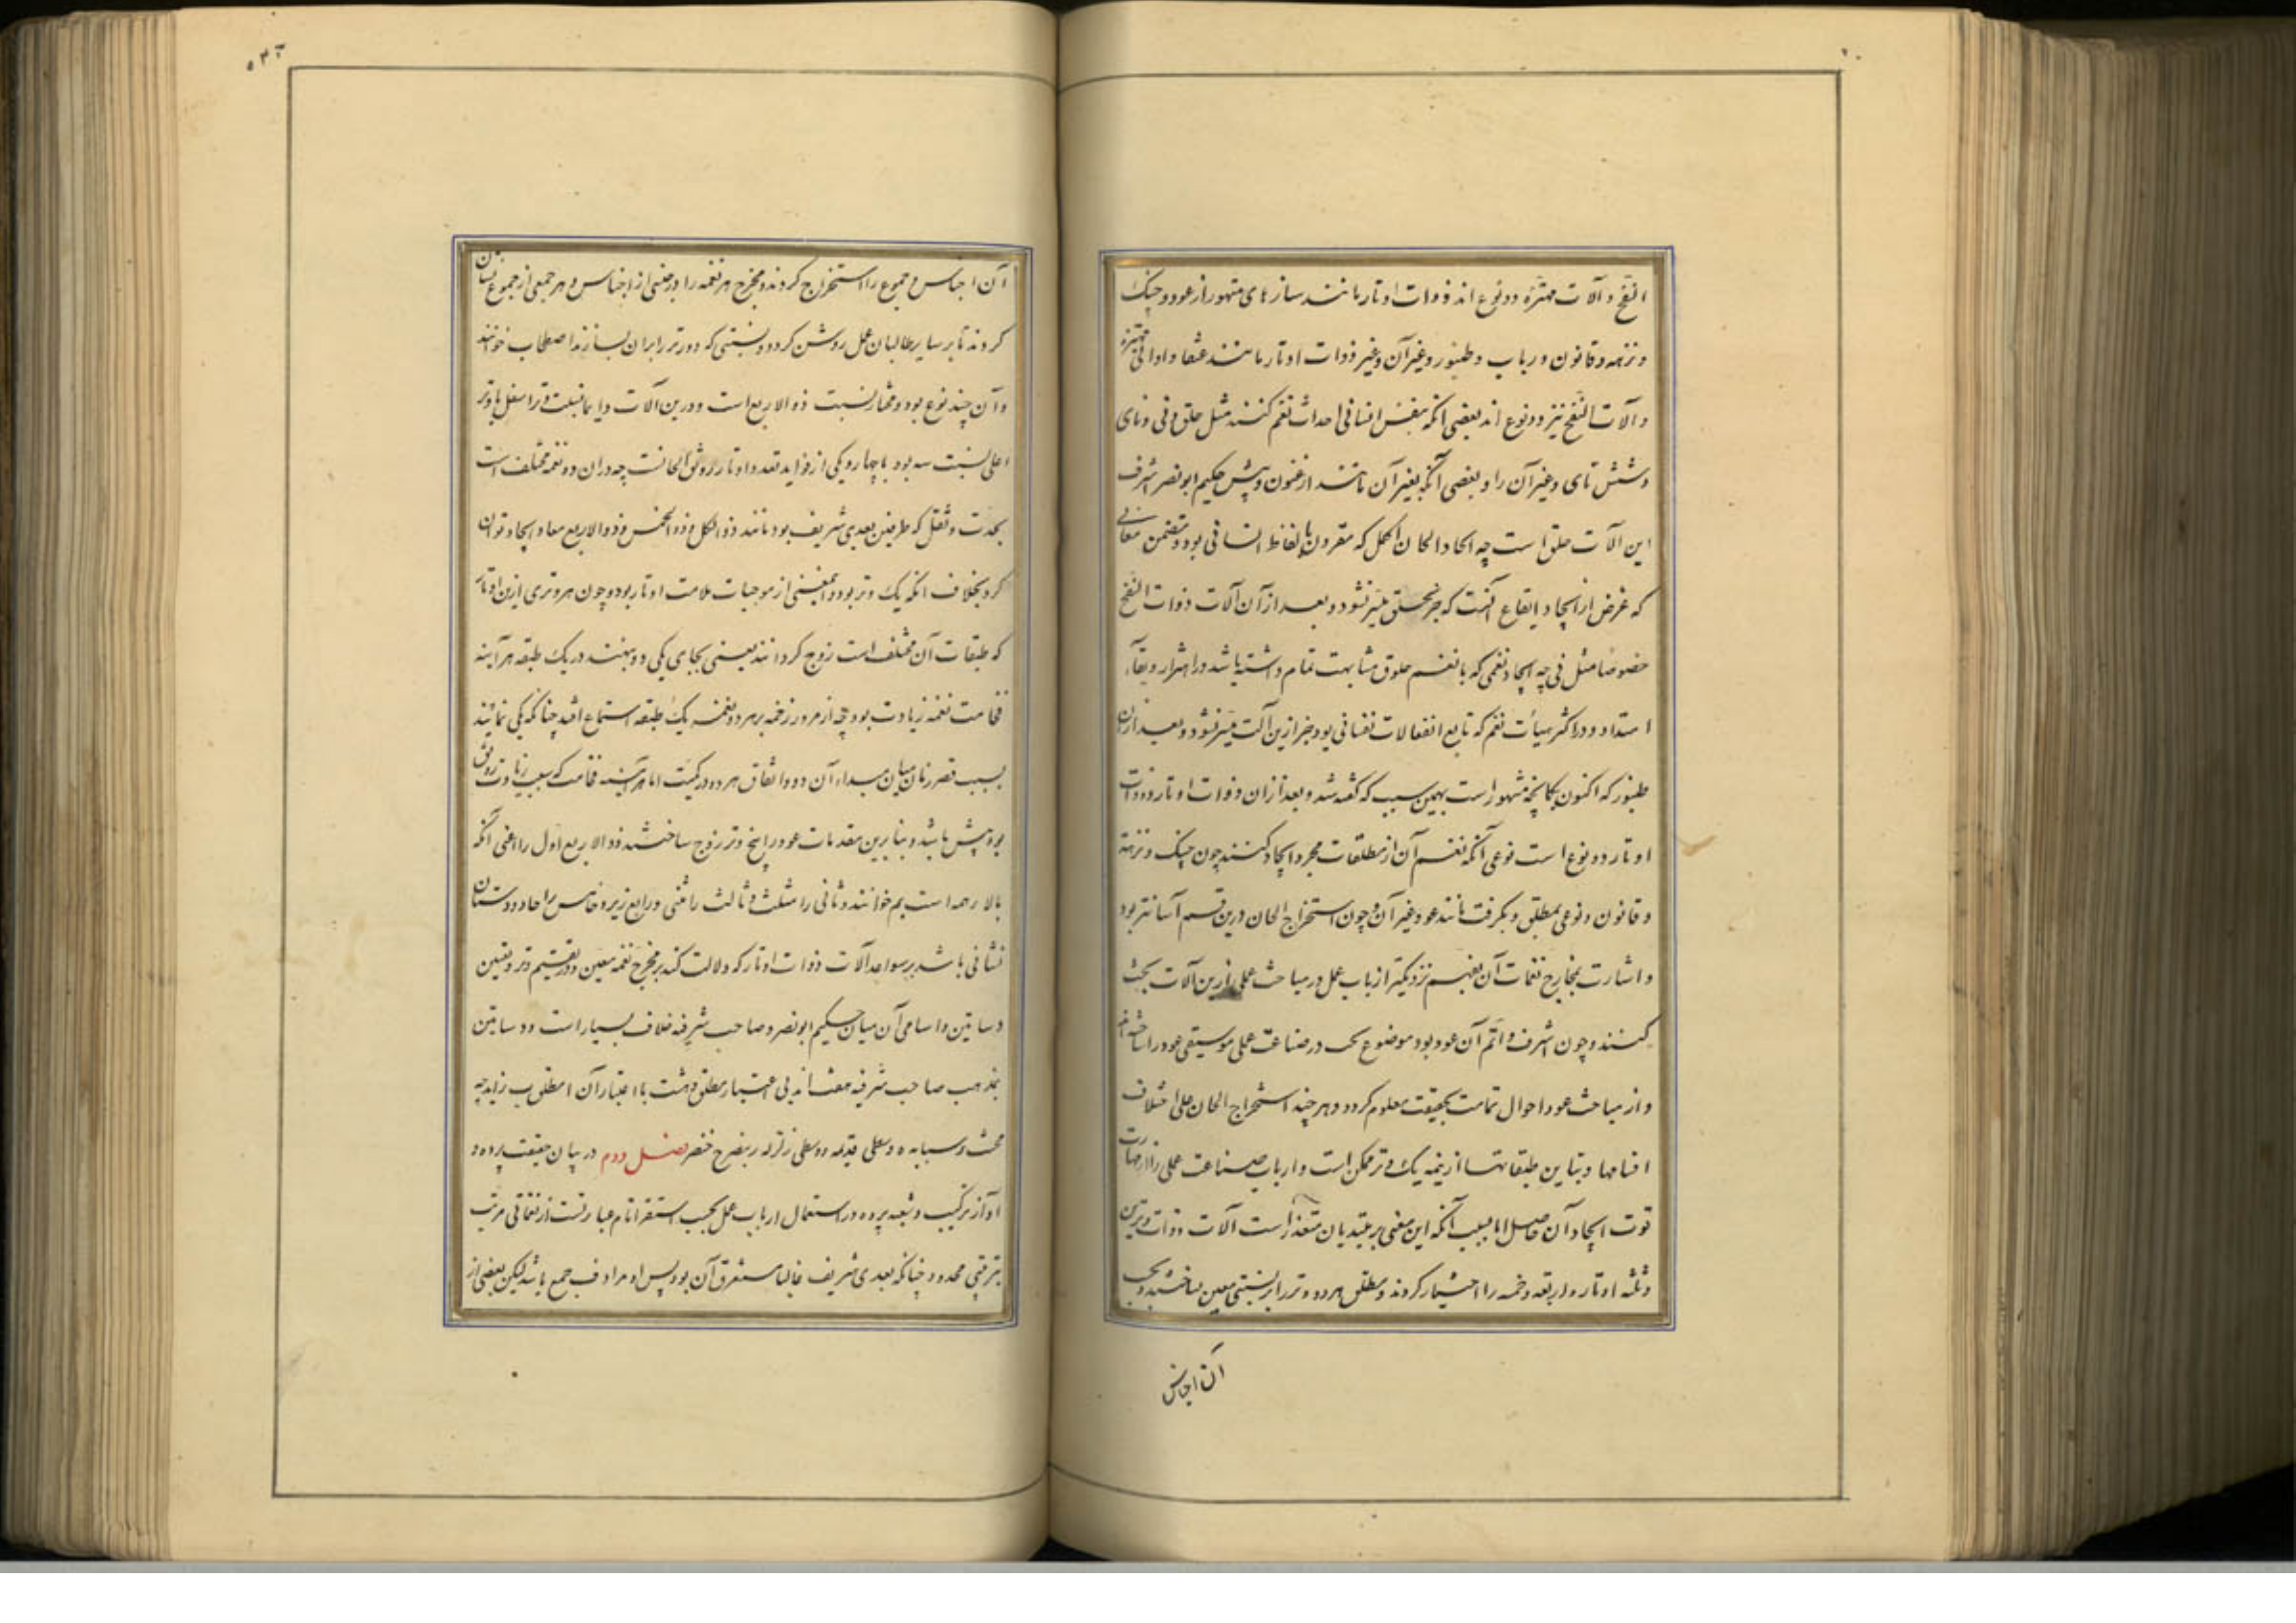 النفخ و آلات مهتزه و دو نوع اند ذوات اوتار مانند سازهای مشهور از عود و چنک
و نزهه و قانون و رباب و طنبور و غیر آن و غیر ذوات اوتار مانند عنقا و اوانی مهتزه
و آلات النفخ نیز دو نوع اند بعضی انکه بنفس انسانی احداث نغم کنند مثل حلق و نی و نای
و شش تای و غیر آن را و بعضی آنکه بغیر آن مانند ارغنون و پیش حکیم ابو نصر اشرف
این آلات حلق است چه ایجاد الحان اکمل که مقرون بالفاظ انسانی بود و متضمن معانی
که غرض از ایجاد ایقاع آنست که جز بحلق میسر نشود و بعد از آن آلات ذوات النفخ
خصوصا مثل نی چه ایجاد نغمی که با نغم حلوق مشابهت تمام داشته باشد در اهتزاز و بقاء
امتداد و در اکثر هیأت نغم که تابع انفعالات نفسانی بود جز ازین آلت میسر نشود و بعد از آن
طنبور که اکنون بکمانچه مشهور است بهمین سبب که گفته شد و بعد از ان ذوات اوتار و ذوات
اوتار دو نوع است نوعی آنکه نغم آن از مطلقات مجرد ایجاد کنند چون چنک و نزهه
و قانون و نوعی بمطلق و بکرفت مانند عود و غیر آن و چون استخراج الحان درین قسم آسانتر بود
و اشارت بمخارج نغمات آن بفهم نزدیکتر ارباب عمل در مباحث عملی ازین آلات بحث
کنند و چون اشرف و اتم آن عود بود موضوع بحث در صناعت عملی موسیقی عود را ساخته اند
و از مباحث عود احوال تمامت بحقیقت معلوم کردد و هر چند استخراج الحان علی اختلاف
اقسامها و تباین طبقاتها از نیمه یک وتر ممکن است و ارباب صناعت عملی را
قوت ایجاد آن حاصل اما بسبب آنکه این معنی بر مبتدیان متعذر است آلات ذوات وترین
و ثلثه اوتار و اربعه و خمسه را اختیار کردند و مطلق هر دو وتر را بر نسبتی معین ساختند و بحسب
آن اجناس
آن اجناس و جموع را استخراج کردند و مخرج هر نغمه را در جنسی از اجناس و هر جمعی از جموع نشان
کردند تا بر سایر طالبان عمل روشن کردد و نسبتی که دو وتر را بران بسازند اصطحاب خوانند
و آن چند نوع بود و مختار نسبت ذو الاربع است و درین آلات دایما نسبت وتر اسفل با وتر
اعلی نسبت سه بود با چهار و یکی از فواید تعدد اوتار رونق الحانست چه دران دو نغمه مختلف است
بحدت و ثقل که طرفین بعدی شریف بود مانند ذو الکل و ذو الخمس و ذو الاربع معا ایجاد توان
کرد بخلاف انکه یک وتر بود و این معنی از موجبات ملامت اوتار بود و چون هر وتری ازین اوتار
که طبقات آن مختلف است زوج کردانند یعنی بجای یکی دو ببندند در یک طبقه هر آینه
فخامت نغمه زیادت بود چه از مرور زخمه بر هر دو نغمه یک طبقه استماع افتد چنانکه یکی نمایند
بسبب قصر زمان میان مبداء آن دو و اتفاق هر دو در کمیت اما هر آینه فخامت که سبب زیادت رونق
بود بیش باشد و بنا برین مقدمات عود را پنج وتر زوج ساختند ذو الاربع اول را اعنی آنکه
بالاء همه است بم خوانند و ثانی را مثلث و ثالث را مثنی و رابع زیر و خامس را حاد و دستان
نشانی باشد بر سواعد آلات ذوات اوتار که دلالت کند بر مخرج نغمه معین و در تقسیم وتر و تعیین
دساتین و اسامی آن میان حکیم ابو نصر و صاحب شرفیه خلاف بسیار است و دساتین
بمذهب صاحب شرفیه هفت اند بی اعتبار مطلق و هشت با اعتبار آن ا مطلق ب زاید ج
مجنب د سبابه ه وسطی قدیمه و وسطی زلزل ز بنصر ح خنصر فصل دوم در بیان حقیقت پرده و
آواز و ترکیب و شعبه پرده در استعمال ارباب عمل بحسب استقراء تام عبارتست از نغماتی مرتب
بترتیبی محدود چنانکه بعدی شریف غالبا مستغرق آن بود پس او مرادف جمع باشد لیکن بعضی از